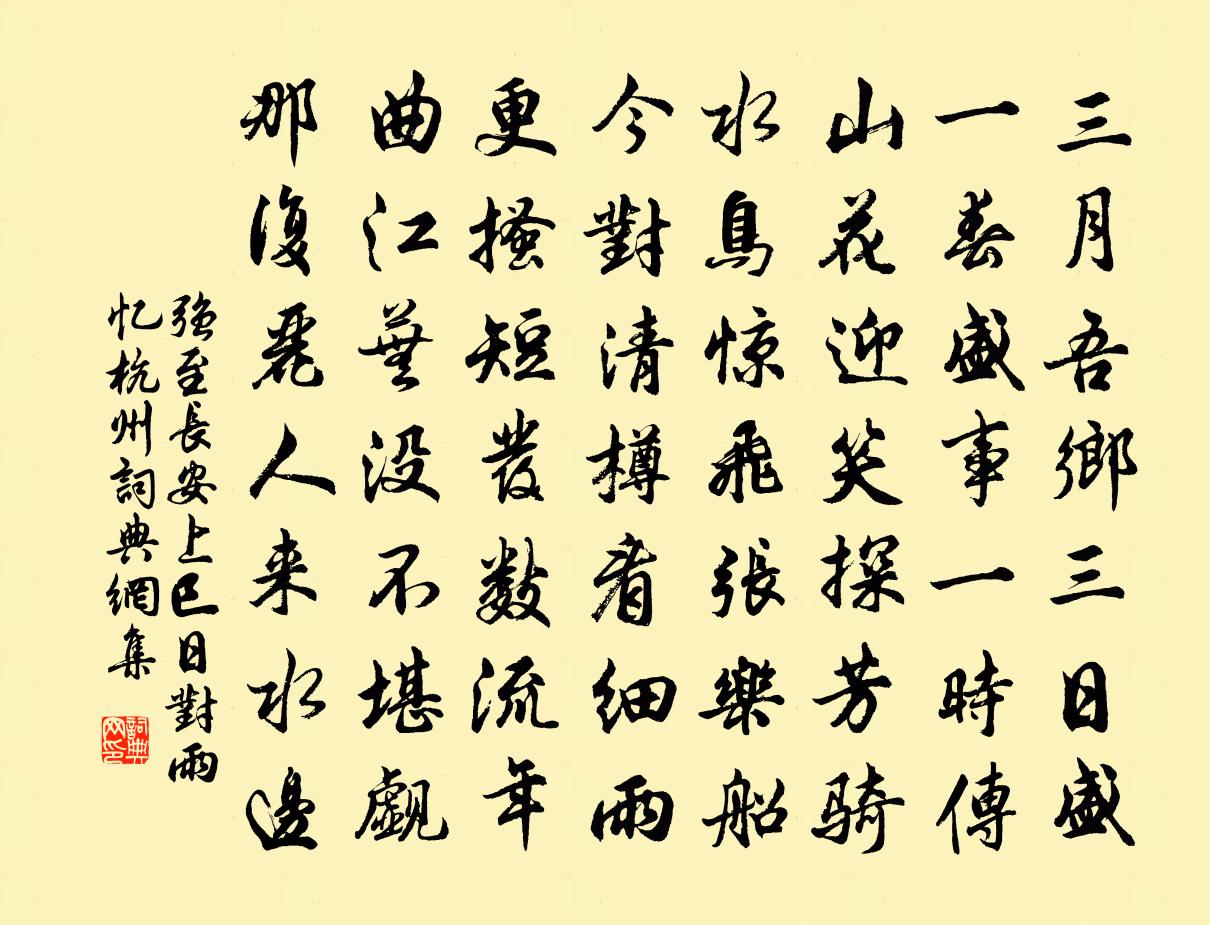 三月吾鄉三日盛
一春盛事一時傳
山花迎笑探芳騎
水鳥惊飛張樂船
今對清樽看細雨
更搔短發數流年
曲江蕪没不堪觑
那復麗人来水邊
強至長安上巳日對雨
忆杭州詞典網集
詞典
网印